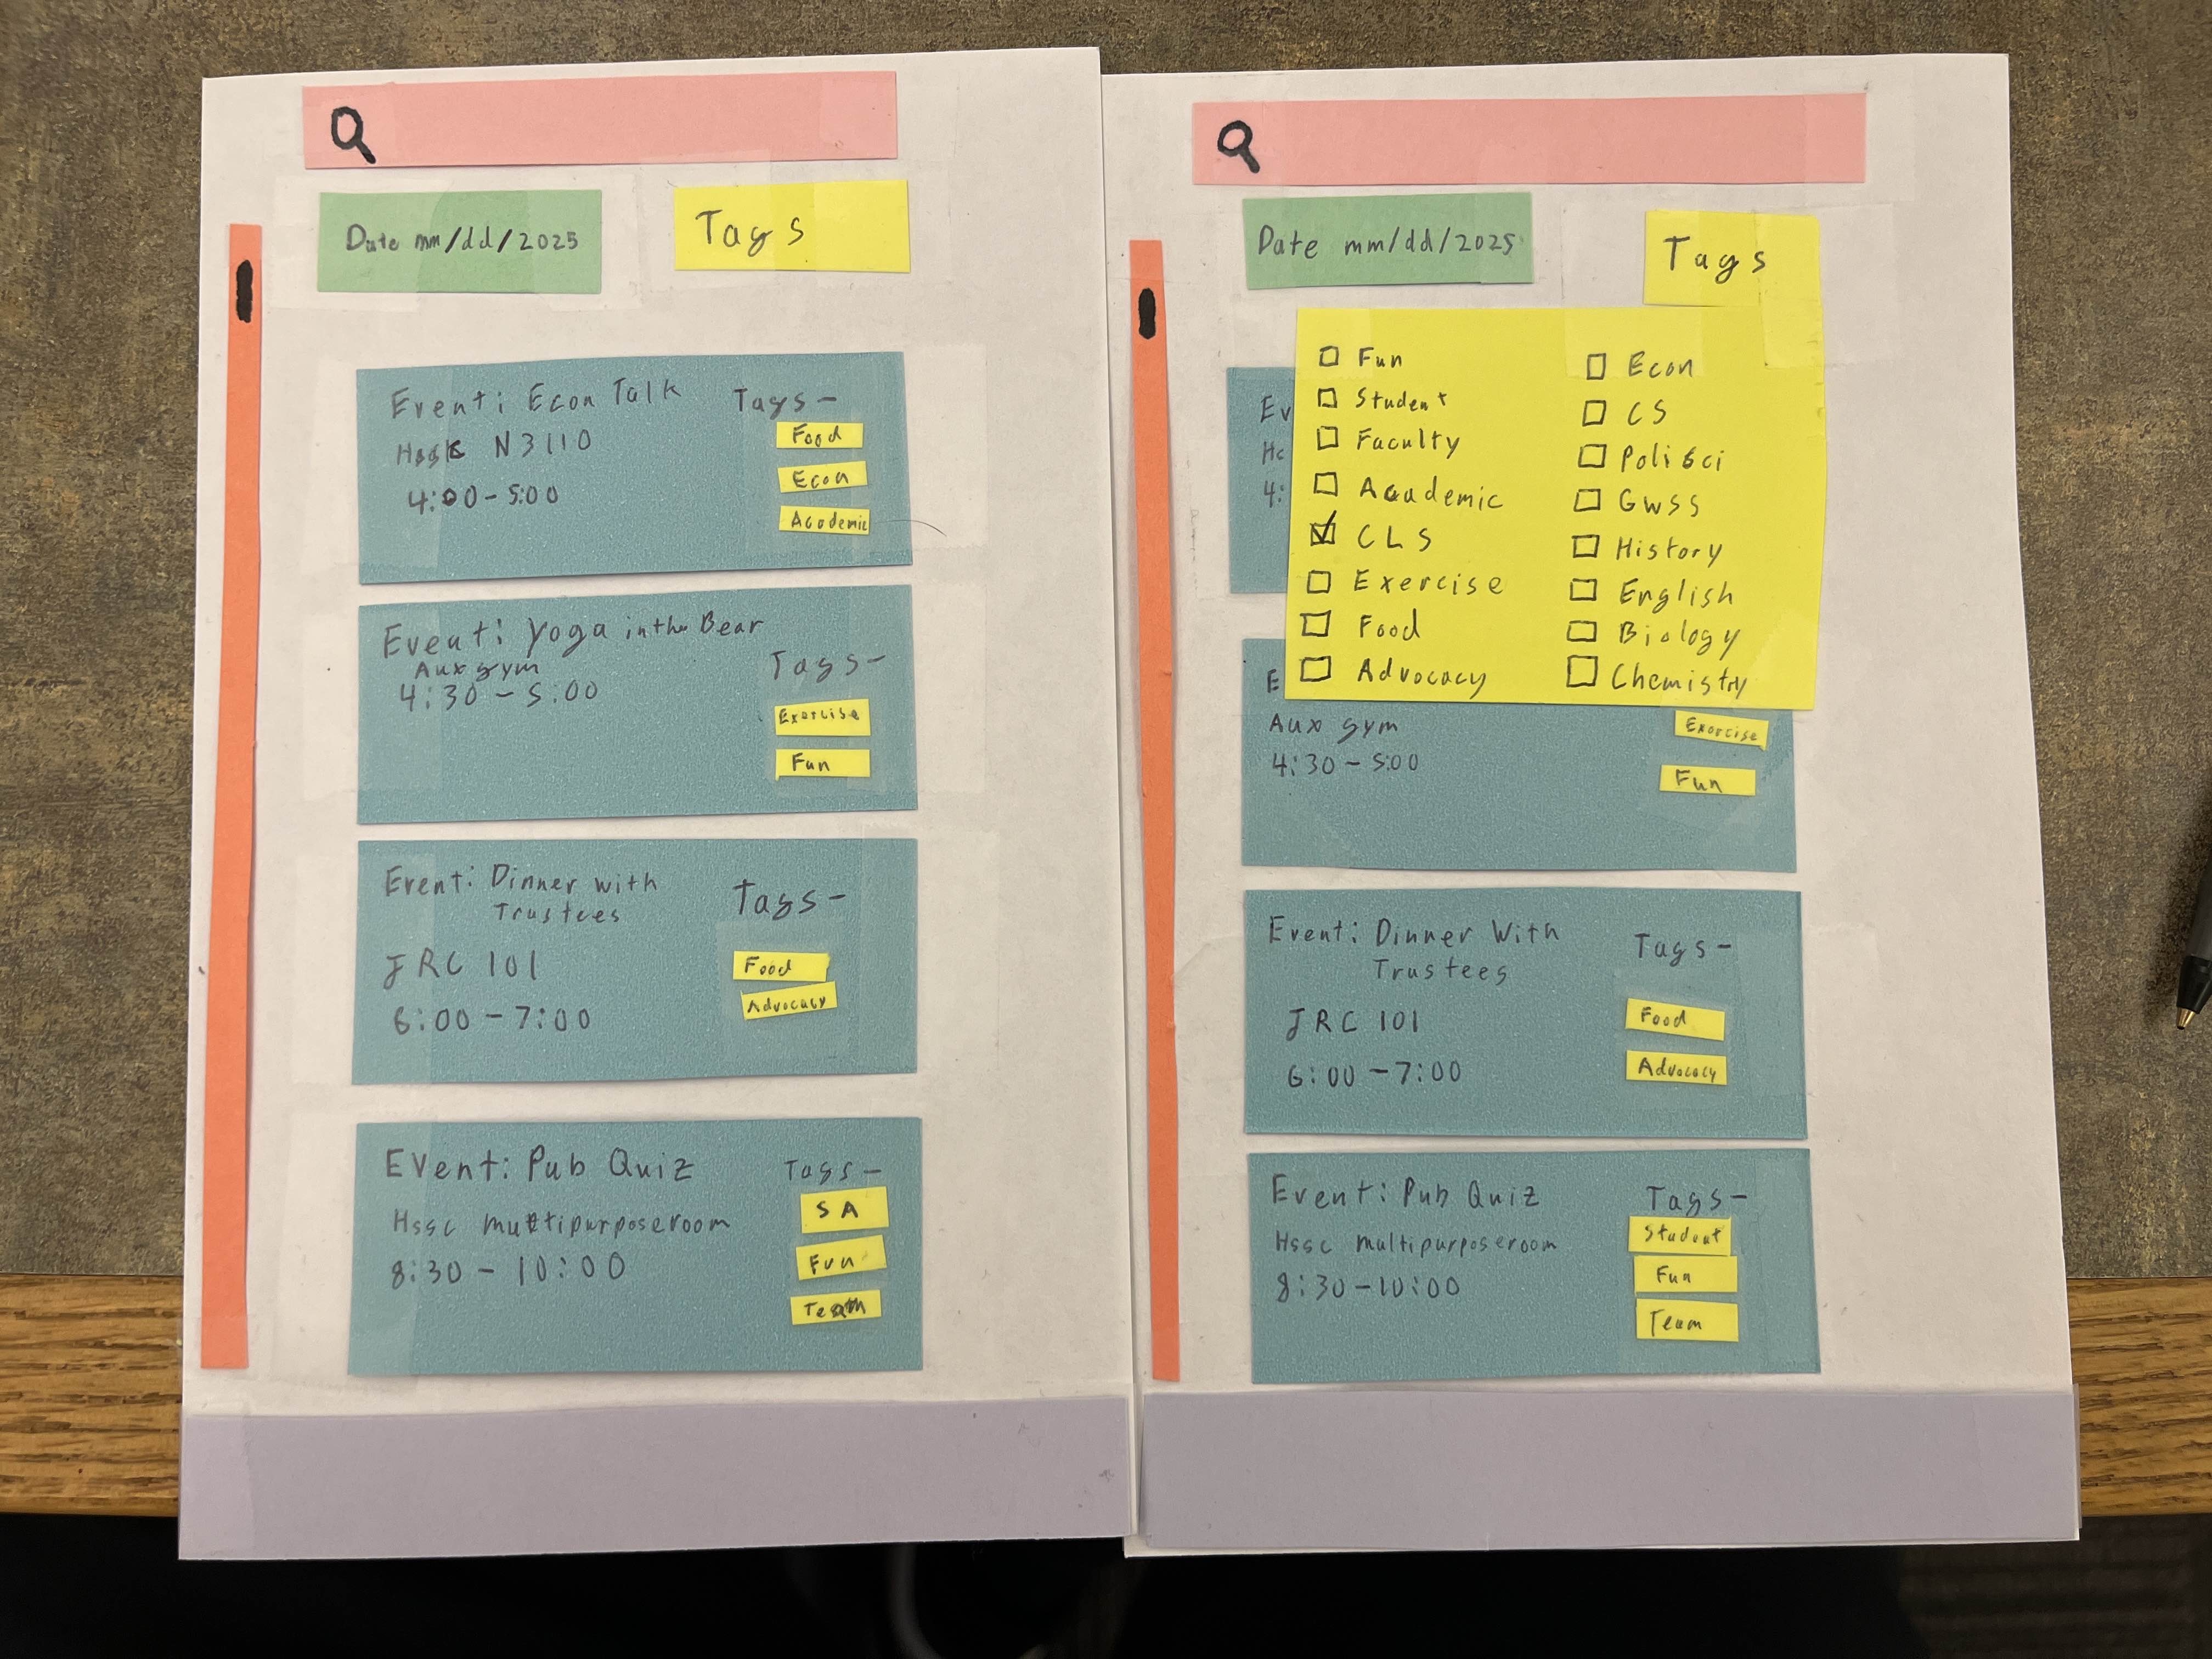 Date mm/dd/2025
Tags
Event: Econ Talk
Tags-
HssC N3110
4:00-5:00
Food
Econ
Academic
Event: Yoga in the Bear
Aux gym
4:30-5:00
Tags-
Exercise
Fun
Event: Dinner with
Trustees
Tags-
JRC 101
6:00-7:00
Food
Advocacy
Event: Pub Quiz
Tags-
Hssc multipurposeroom
8:30-10:00
SA
Fun
Team
Date mm/dd/2025
Tags
Fun
Student
Faculty
Academic
CLS
Exercise
Food
Advocacy
Econ
CS
Polisci
GWSS
History
English
Biology
Chemistry
Ev
Hc
4:
E
Aux gym
4:30-5:00
Exercise
Fun
Event: Dinner With
Trustees
Tags-
JRC 101
6:00-7:00
Food
Advococy
Event: Pub Quiz
Tags-
Hssc multipurposeroom
8:30-10:00
Student
Fun
Team